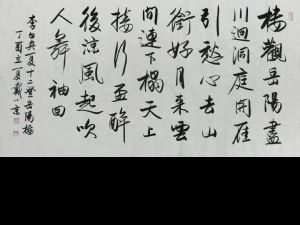 楼觀岳陽盡
川迥洞庭開雁
引愁心去山
銜好月来雲
間連下榻天上
接行盃醉
後涼風起吹
人舞袖回
李白與夏十二登岳陽樓
丁酉立夏